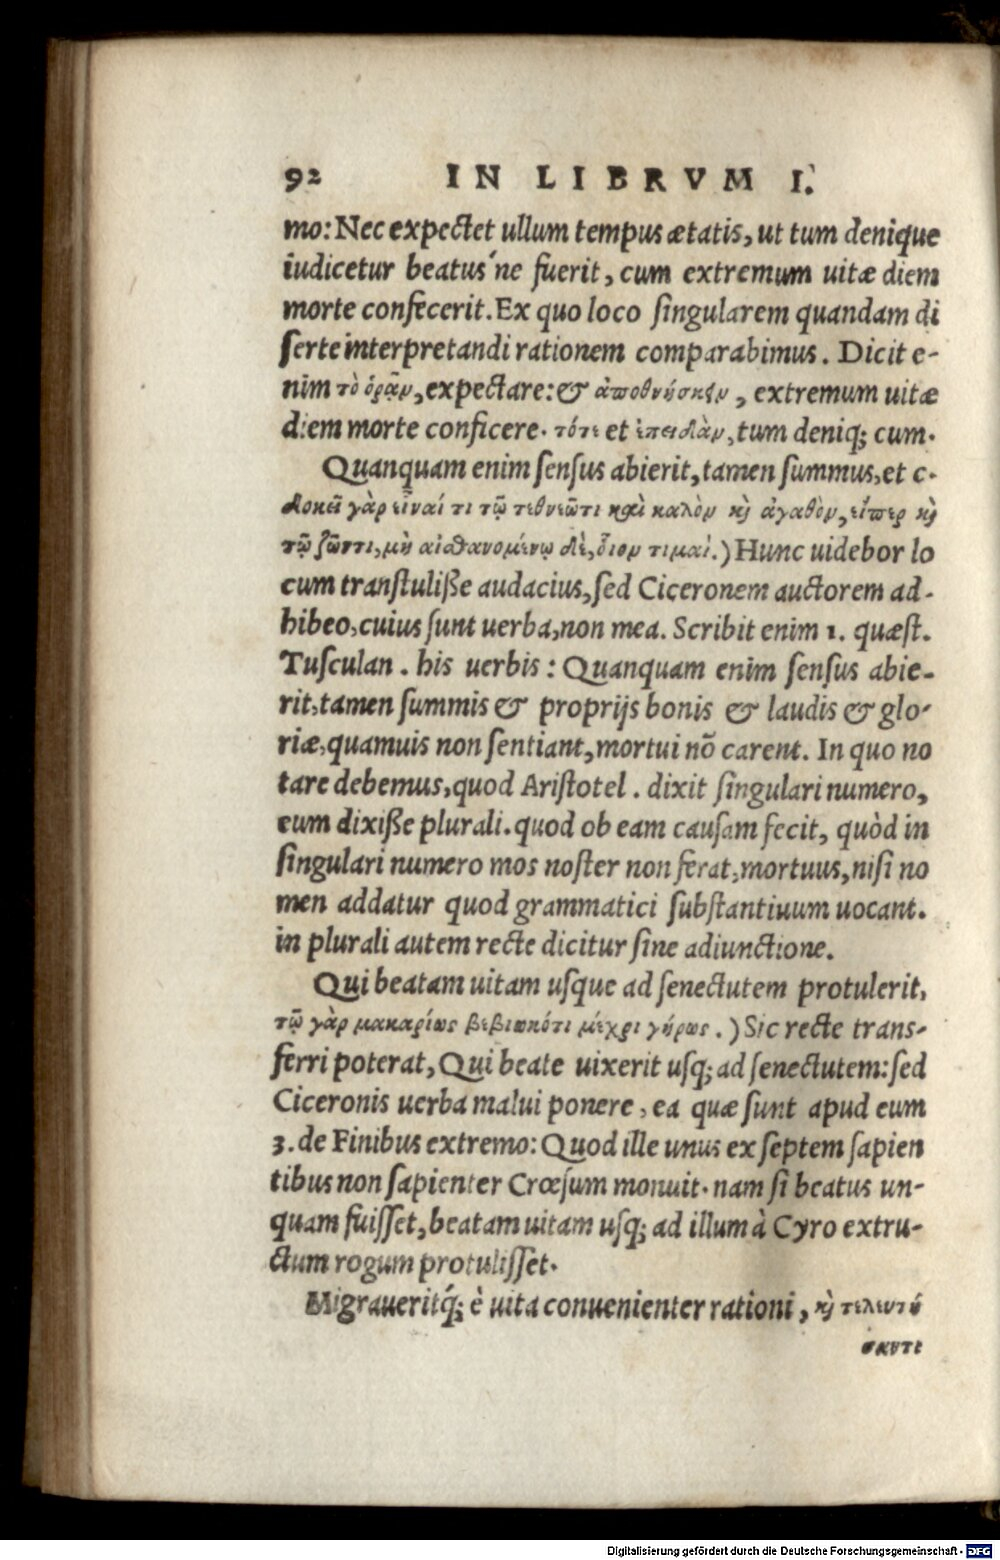 92 IN LIBRVM I.
mo: Nec expectet ullum tempus ætatis, ut tum denique
iudicetur beatus'ne fuerit, cum extremum uitæ diem
morte confecerit. Ex quo loco singularem quandam di
serte interpretandi rationem comparabimus. Dicit e-
nim τὸ ὁρᾶν, expectare: & ἀποθνήσκειν, extremum uitæ
diem morte conficere. τότε et ἐπειδὰν, tum deniq; cum.
Quanquam enim sensus abierit, tamen summus, et c.
δοκεῖ γὰρ εἶναί τι τῷ τεθνεῶτι καὶ καλὸν καὶ ἀγαθὸν, εἴπερ καὶ
τῷ ζῶντι, μὴ αἰσθανομένῳ δὲ, οἷον τιμαὶ.) Hunc uidebor lo
cum transtulisse audacius, sed Ciceronem auctorem ad-
hibeo, cuius sunt uerba, non mea. Scribit enim 1. quæst.
Tusculan. his uerbis: Quanquam enim sensus abie-
rit, tamen summis & proprijs bonis & laudis & glo-
riæ, quamuis non sentiant, mortui nõ carent. In quo no
tare debemus, quod Aristotel. dixit singulari numero,
eum dixisse plurali. quod ob eam causam fecit, quòd in
singulari numero mos noster non ferat, mortuus, nisi no
men addatur quod grammatici substantiuum uocant.
in plurali autem recte dicitur sine adiunctione.
Qui beatam uitam usque ad senectutem protulerit,
τῷ γὰρ μακαρίως βεβιωκότι μέχρι γήρως.) Sic recte trans-
ferri poterat, Qui beate uixerit usq; ad senectutem: sed
Ciceronis uerba malui ponere, ea quæ sunt apud eum
3. de Finibus extremo: Quod ille unus ex septem sapien
tibus non sapienter Crœsum monuit. nam si beatus un-
quam fuisset, beatam uitam usq; ad illum à Cyro extru-
ctum rogum protulisset.
Migraueritq́; è uita conuenienter rationi, καὶ τελευτή
σαντι
Digitalisierung gefördert durch die Deutsche Forschungsgemeinschaft - DFG